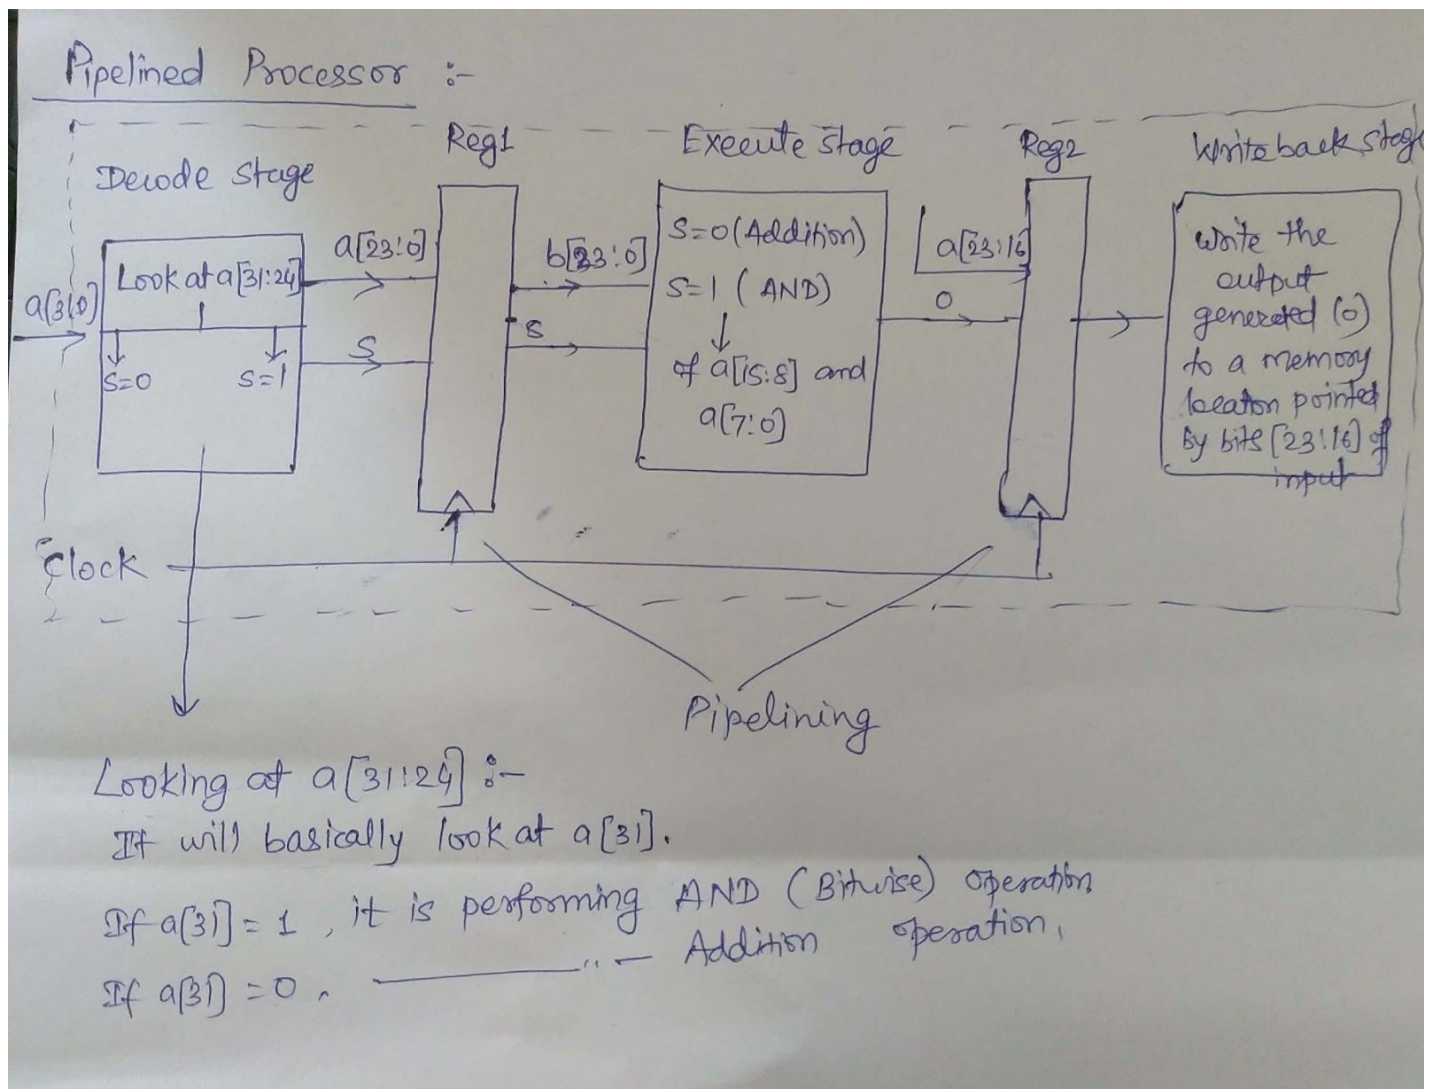 Pipelined Processor :-
Decode Stage
Reg1
Execute Stage
Reg2
Write back Stage
a[31:0]
Look at a[31:24]
S=0
S=1
a[23:0]
S
b[23:0]
S
S=0 (Addition)
S=1 ( AND)
of a[15:8] and
a[7:0]
a[23:16]
O
Write the
output
generated (o)
to a memory
location pointed
By bits [23:16] of
input
Clock
Pipelining
Looking at a[31:24] :-
It will basically look at a[31].
If a[31] = 1 , it is performing AND (Bitwise) operation
If a[31] = 0 , ———— " — Addition operation.